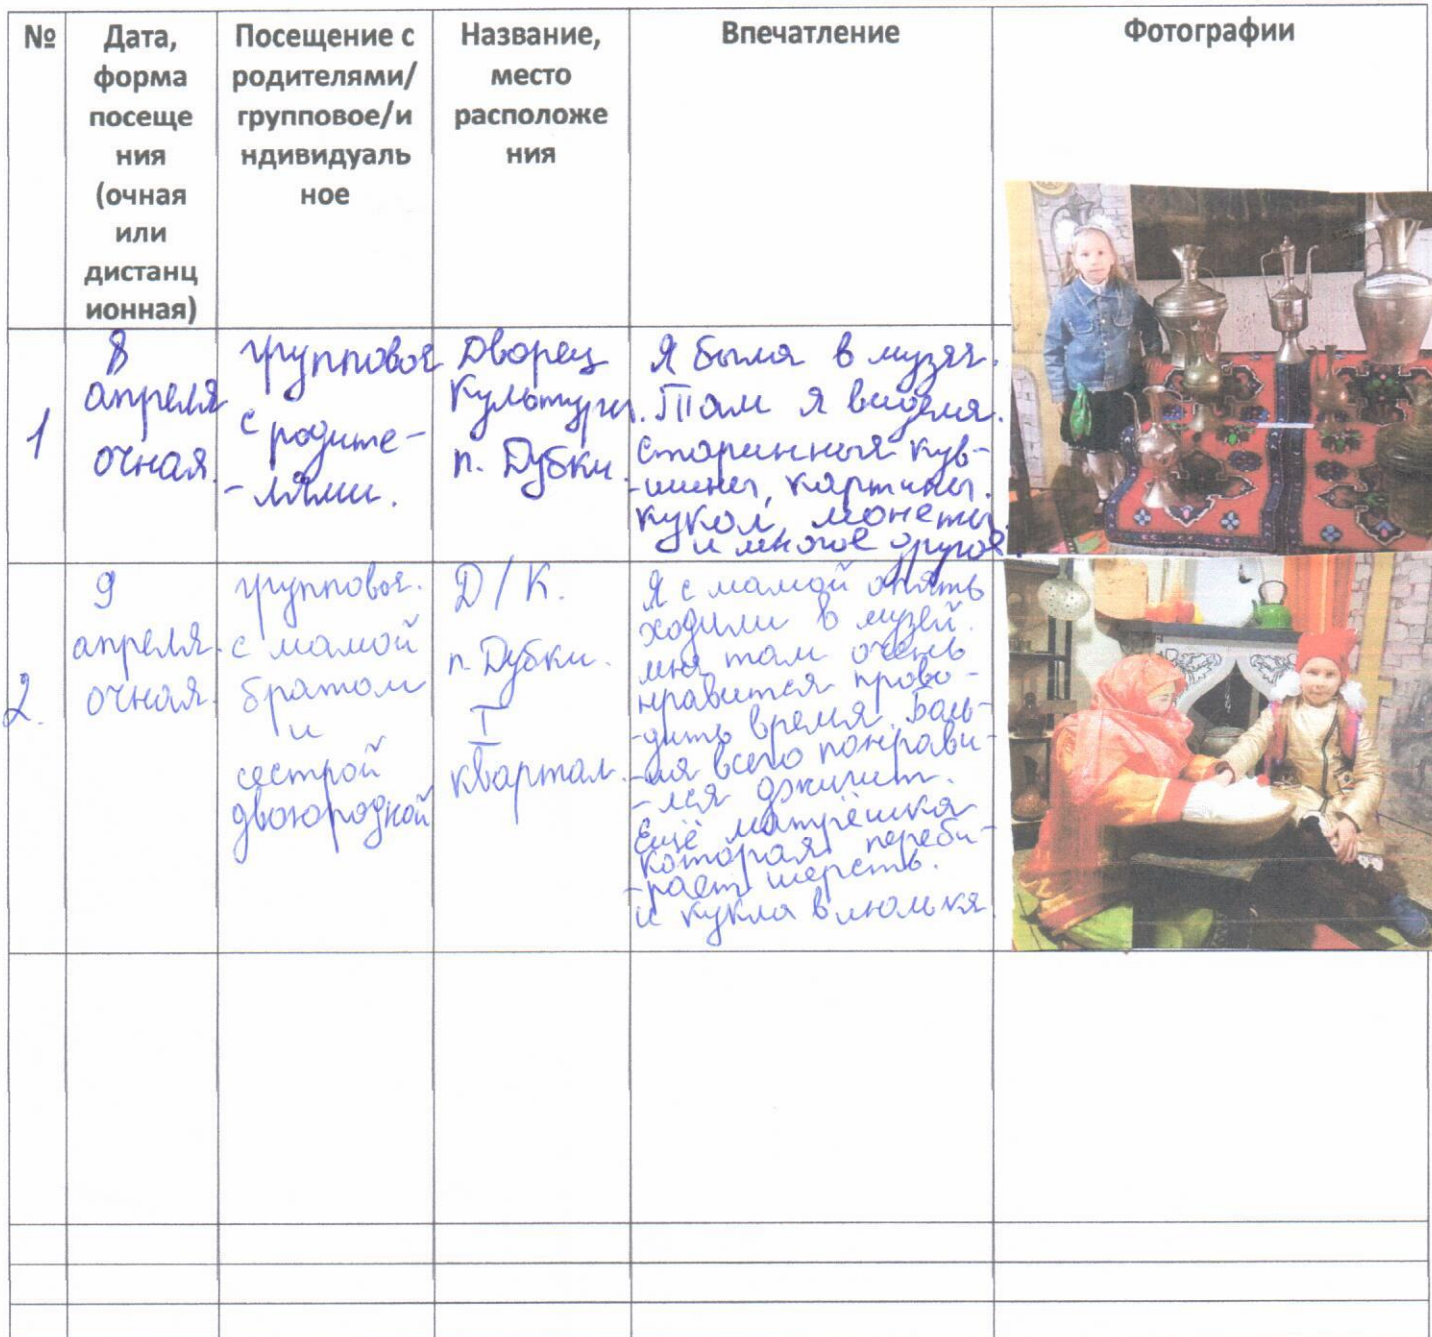 №
Дата,
форма
посеще
ния
(очная
или
дистанц
ионная)
Посещение с
родителями/
групповое/и
ндивидуаль
ное
Название,
место
расположе
ния
Впечатление
Фотографии
1
8
апреля
очная.
групповое
с родите-
-лями.
Дворец
Культуры.
п. Дубки.
Я была в музее.
Там я видела.
старинные кув-
-шины, картины.
кукол, монеты.
и многое другое.
2.
9
апреля.
очная.
групповое.
с мамой
братом
и
сестрой
двоюродной
Д/К.
п. Дубки.
I
квартал.
Я с мамой опять
ходили в музей.
мне там очень
нравится прово-
-дить время. Боль-
-ше всего понрави-
-лся джигит.
Ещё матрёшка
которая переби-
-рает шерсть.
и кукла в люльке.